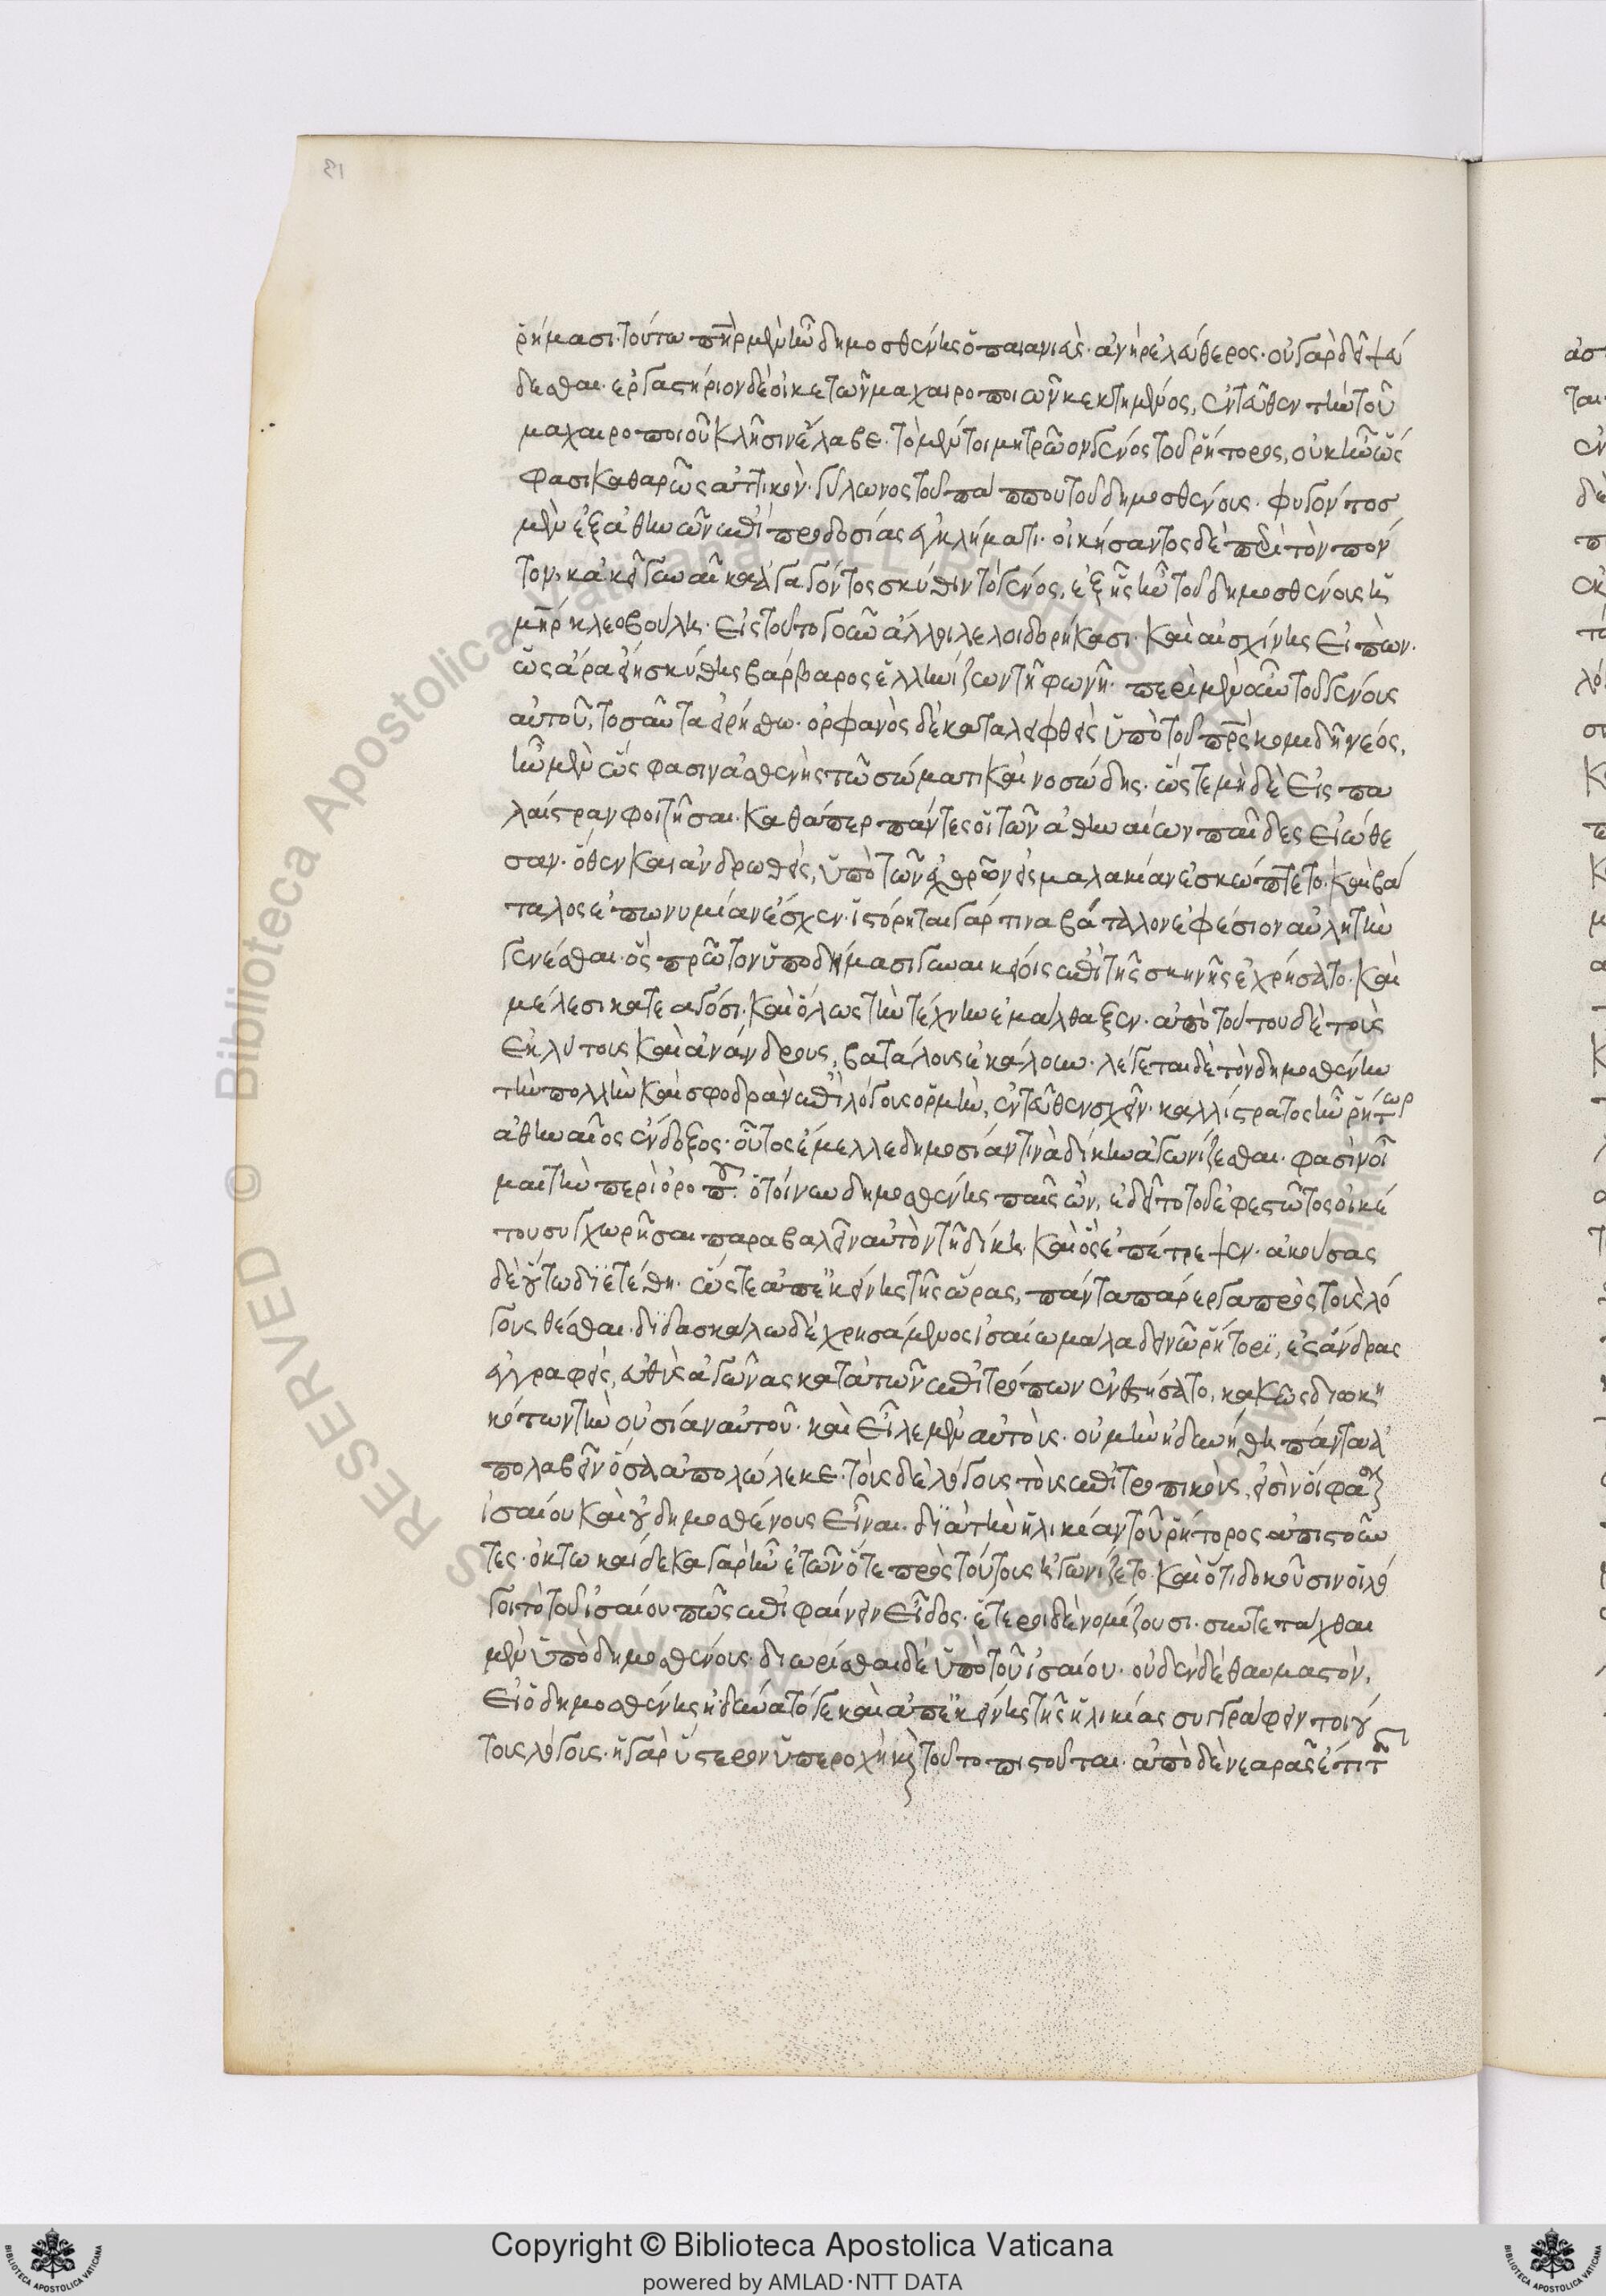 ῥήμασι. τούτω πῆρ μὲν ἦν δημοσθένης ὁ παιανιεὺς. ἀνὴρ ἐλεύθερος. οὐ γὰρ δεῖ ψεύ
δεσθαι. ἐργαστήριον δὲ οἰκετῶν μαχαιροποιῶν κεκτημένος, ἐντεῦθεν τὴν τοῦ
μαχαιροποιοῦ κλῆσιν ἔλαβε. τὸ μέν τοι μητρῶον γένος τοῦ ῥήτορος, οὐκ ἦν ὥς
φασι καθαρῶς ἀττικόν. γύλωνος τοῦ πάππου τοῦ δημοσθένους. φυγόντος
μὲν ἐξ ἀθηνῶν ἐπὶ προδοσίας ἐγκλήματι. οἰκήσαντος δὲ περὶ τὸν πόν
τον, κἀκεῖ γυναῖκα ἀγαγόντος σκύθιν τὸ γένος, ἐξ ἧς ἦν τοῦ δημοσθένους ἡ
μῆρ κλεοβούλη. εἰς τοῦτο γοῦν ἄλλοι λελοιδορήκασι. καὶ αἰσχίνης εἰπὼν.
ὡς ἄρα εἴη σκύθης βάρβαρος ἑλληνίζων τῆ φωνῆ. περὶ μὲν οὖν τοῦ γένους
αὐτοῦ, τοσαῦτα εἰρήσθω. ὀρφανὸς δὲ καταλειφθεὶς ὑπὸ τοῦ πρς κομιδῆ νέος,
ἦν μὲν ὥς φασιν ἀσθενὴς τῶ σώματι καὶ νοσώδης. ὥστε μὴ δὲ εἰς πα
λαίστραν φοιτῆσαι. καθάπερ πάντες οἱ τῶν ἀθηναίων παῖδες εἰώθε
σαν. ὅθεν καὶ ἀνδρωθεὶς, ὑπὸ τῶν ἐχθρῶν εἰς μαλακίαν ἐσκώπτετο. καὶ βά
ταλος ἐπωνυμίαν ἔσχεν. ἱστόρηται γάρ τινα βάταλλον ἐφέσιον αὐλητὴν
γενέσθαι. ὃς πρῶτον ὑποδήμασι γυναικείοις ἐπὶ τῆς σκηνῆς ἐχρήσατο. καὶ
μέλεσι κατεαγόσι. καὶ ὅλως τὴν τέχνην ἐμάλθαξεν. ἀπὸ τούτου δὲ τοὺς
ἐκλύτους καὶ ἀνάνδρους, βατάλους ἐκάλουν. λέγεται δὲ τὸν δημοσθένην
τὴν πολλὴν καὶ σφοδρὰν ἐπὶ λόγους ὁρμὴν, ἐντεῦθεν σχεῖν. καλλίστρατος ἦν ῥήτωρ
ἀθηναῖος ἔνδοξος. οὗτος ἔμελλε δημοσίαν τινὰ δίκην ἀγωνίζεσθαι. φασὶν οἶ
μαι τὴν περὶ ὀροποῦ. ὅτοίνυν δημοσθένης παῖς ὢν, ἐδεῖτο τοῦ ἐφεστῶτος οἰκέ
του συγχωρῆσαι παραβαλεῖν αὐτὸν τῆ δίκη. καὶ ὃς ἐπέτρεψεν. ἀκούσας
δὲ οὕτω διετέθη. ὥστε ἀπ' ἐκείνης τῆς ὥρας, πάντα πάρεργα πρὸς τοὺς λό
γους θέσθαι. διδασκάλω δὲ χρησάμενος ἰσαίω μάλα δεινῶ ῥήτορι, εἰς ἄνδρας
ἐγγραφεὶς, εὐθὺς ἀγῶνας κατὰ τῶν ἐπιτρόπων ἐνεστήσατο, κακῶς διωκη
κότων τὴν οὐσίαν αὐτοῦ. καὶ εἷλε μὲν αὐτούς. οὐ μὴν ἠδυνήθη πάντα ἀ
πολαβεῖν ὅσα ἀπολώλεκε. τοὺς δὲ λόγους τοὺς ἐπιτροπικοὺς, εἰσὶν οἵ φα
ἰσαίου καὶ οὐ δημοσθένους εἶναι. διὰ τὴν ἡλικίαν τοῦ ῥήτορος ἀπιστοῦν
τες. ὀκτωκαίδεκα γὰρ ἦν ἐτῶν ὅτε πρὸς τούτους ἠγωνίζετο. καὶ ὅτι δοκοῦσιν οἱ λό
γοι τὸ τοῦ ἰσαίου πῶς ἐπιφαίνειν εἶδος. ἕτεροι δὲ νομίζουσι. συντετάχθαι
μὲν ὑπὸ δημοσθένους. διωρθῶσθαι δὲ ὑπὸ τοῦ ἰσαίου. οὐδὲν δὲ θαυμαστὸν,
εἰ ὁ δημοσθένης ἠδύνατό γε καὶ ἀπ' ἐκείνης τῆς ἡλικίας συγγράφειν τοιού
τους λόγους. ἡ γὰρ ὕστερον ὑπεροχὴ καὶ τοῦτο πιστοῦται. ἀπὸ δὲ νεαρᾶς ἔτι τῆς